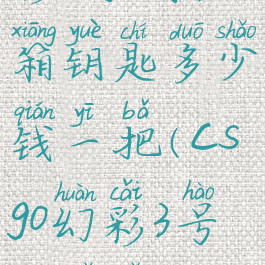 xiāng yuè chí duō shǎo
箱钥匙多少
qián yī bǎ
钱一把(CS
huàn cǎi hào
90幻彩3号